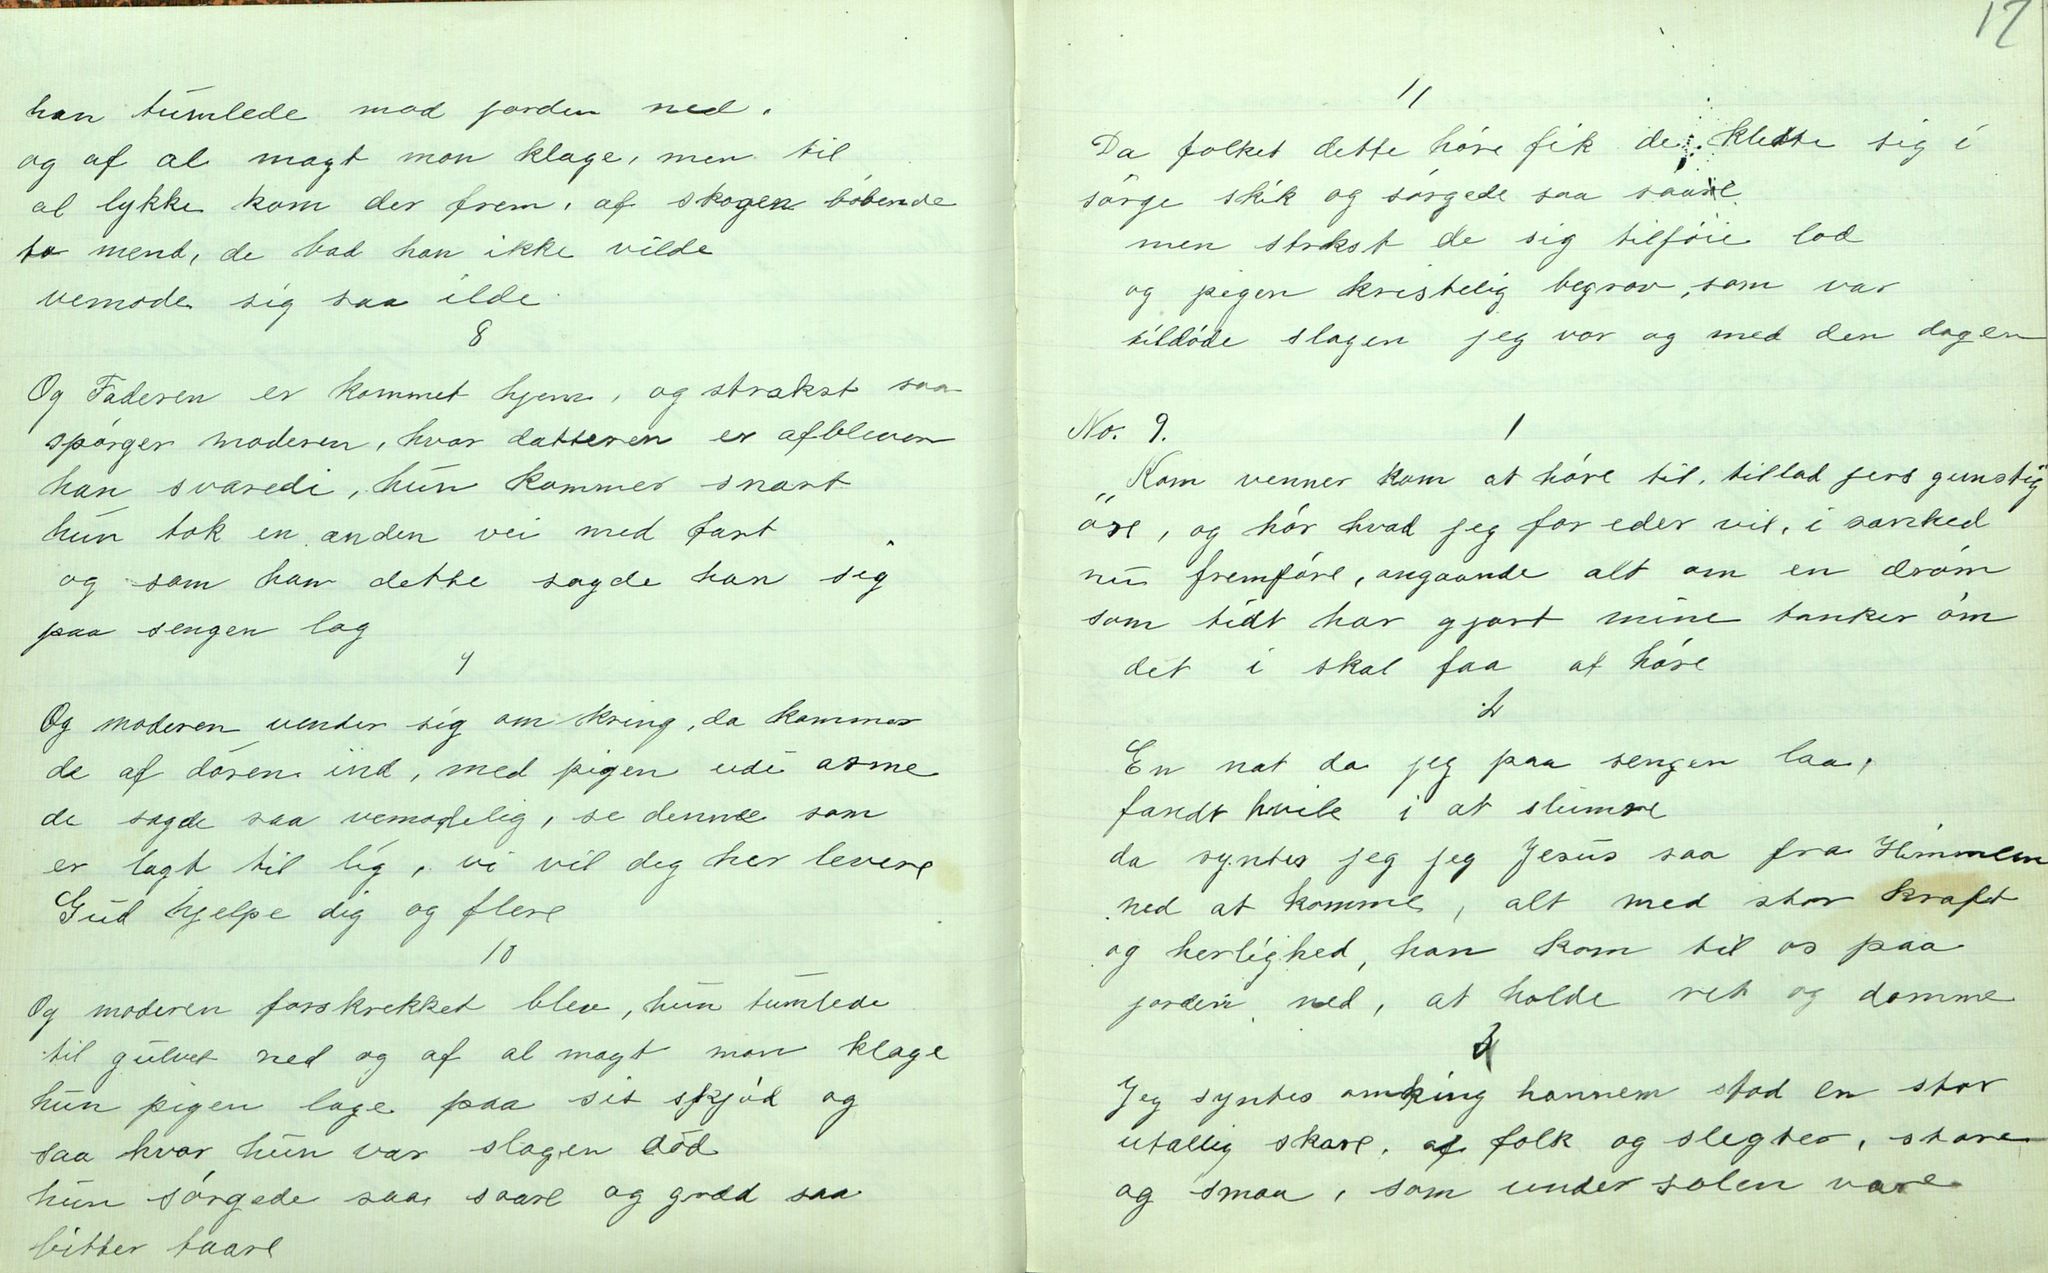 han tumlede mod jorden ned.
og af al magt mon klage, men til
al lykke kom der frem, af skogen löbende
to mend, de bad han ikke vilde
vemode sig saa ilde
8
Og Faderen er kommet hjem, og strakst saa
spörger moderen, hvor datteren er afbleven
han svaredi, hun kommer snart
hun tok en anden vei med fart
og som han dette sagde han sig
paa sengen lag
9
Og moderen vender sig om kring, da kommer
de af dören ind, med pigen udi arme
de sagde saa vemodelig, se denne som
er lagt til lig, vi vil dig her levere
Gud hjelpe dig og flere
10
Og moderen forskrekket blev, hun tumlede
til gulvet ned og af al magt mon klage
hun pigen lage paa sit skjöd og
saa hvor hun var slagen död
hun sörgede saa saare og græd saa
bitter taare
17
11
Da folket dette höre fik de kledte sig i
sörge skik og sörgede saa saare
men strkst de sig tilföie lod
og pigen kristelig begrov, som var
tildöde slagen jeg var og med den dagen
No. 9. 1
„Kom venner kom at höre til, tillad jers gunstig"
öre, og hör hvad jeg for eder vil, i sanhed
nu fremföre, angaande alt om en dröm
som tidt har gjort mine tanker öm
det i skal faa at höre
2
En nat da jeg paa sengen laa,
fandt hvile i at slumre
da syntes jeg jeg Jesus saa fra Himmlen
ned at komme, alt med stor kraft
og herlighed, han kom til os paa
jorden ned, at holde ret og domme
3
Jeg syntes omking hannem stod en stor
utallig skare, af folk og slegter, store
og smaa, som under solen vare